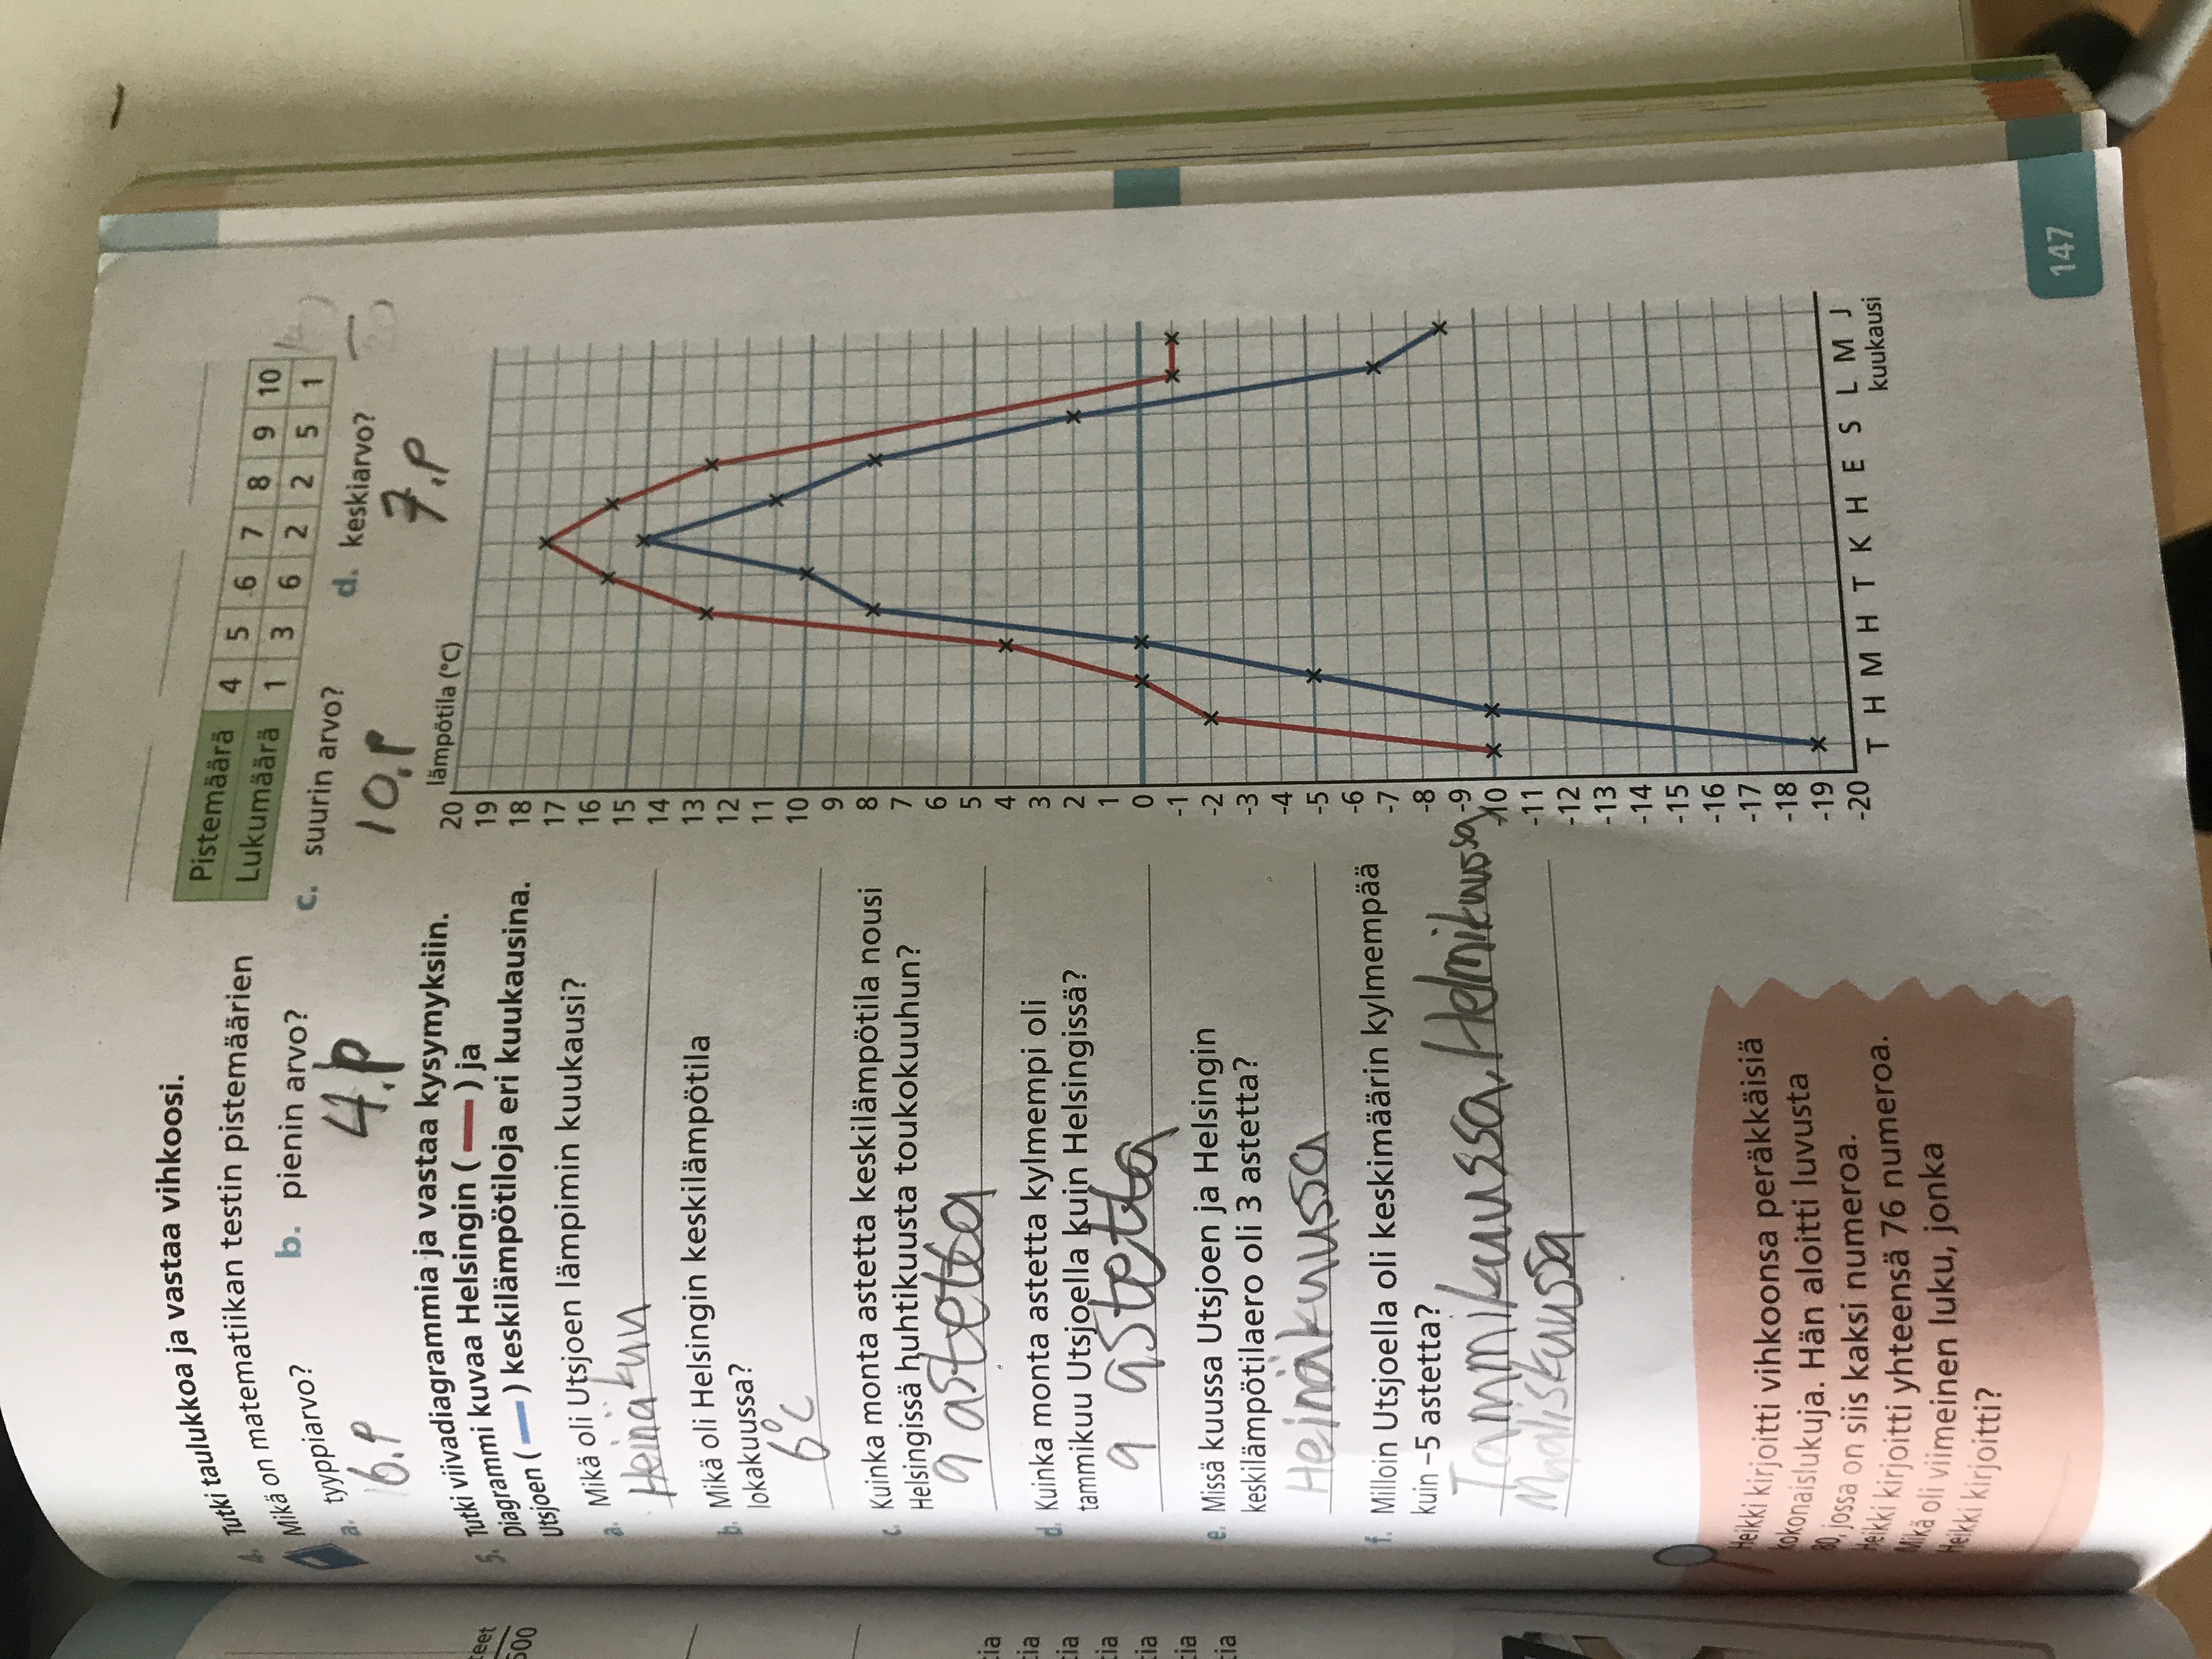 4. Tutki taulukkoa ja vastaa vihkoosi.
Mikä on matematiikan testin pistemäärien
a. tyyppiarvo?
b. pienin arvo?
c. suurin arvo?
d. keskiarvo?
6.p
4.p
10.p
7.p
Pistemäärä 4 5 6 7 8 9 10
Lukumäärä 1 3 6 2 2 5 1
5. Tutki viivadiagrammia ja vastaa kysymyksiin.
Diagrammi kuvaa Helsingin ( ) ja
Utsjoen ( ) keskilämpötiloja eri kuukausina.
a. Mikä oli Utsjoen lämpimin kuukausi?
Heinäkuu
b. Mikä oli Helsingin keskilämpötila
lokakuussa?
6°c
c. Kuinka monta astetta keskilämpötila nousi
Helsingissä huhtikuusta toukokuuhun?
9 astetta
d. Kuinka monta astetta kylmempi oli
tammikuu Utsjoella kuin Helsingissä?
9 astetta
e. Missä kuussa Utsjoen ja Helsingin
keskilämpötilaero oli 3 astetta?
Heinäkuussa
f. Milloin Utsjoella oli keskimäärin kylmempää
kuin –5 astetta?
Tammikuussa, Helmikuussa,
Maaliskuussa
lämpötila (°C)
20
19
18
17
16
15
14
13
12
11
10
9
8
7
6
5
4
3
2
1
0
-1
-2
-3
-4
-5
-6
-7
-8
-9
-10
-11
-12
-13
-14
-15
-16
-17
-18
-19
-20
T H M H T K H E S L M J
kuukausi
Heikki kirjoitti vihkoonsa peräkkäisiä
kokonaislukuja. Hän aloitti luvusta
80, jossa on siis kaksi numeroa.
Heikki kirjoitti yhteensä 76 numeroa.
Mikä oli viimeinen luku, jonka
Heikki kirjoitti?
147